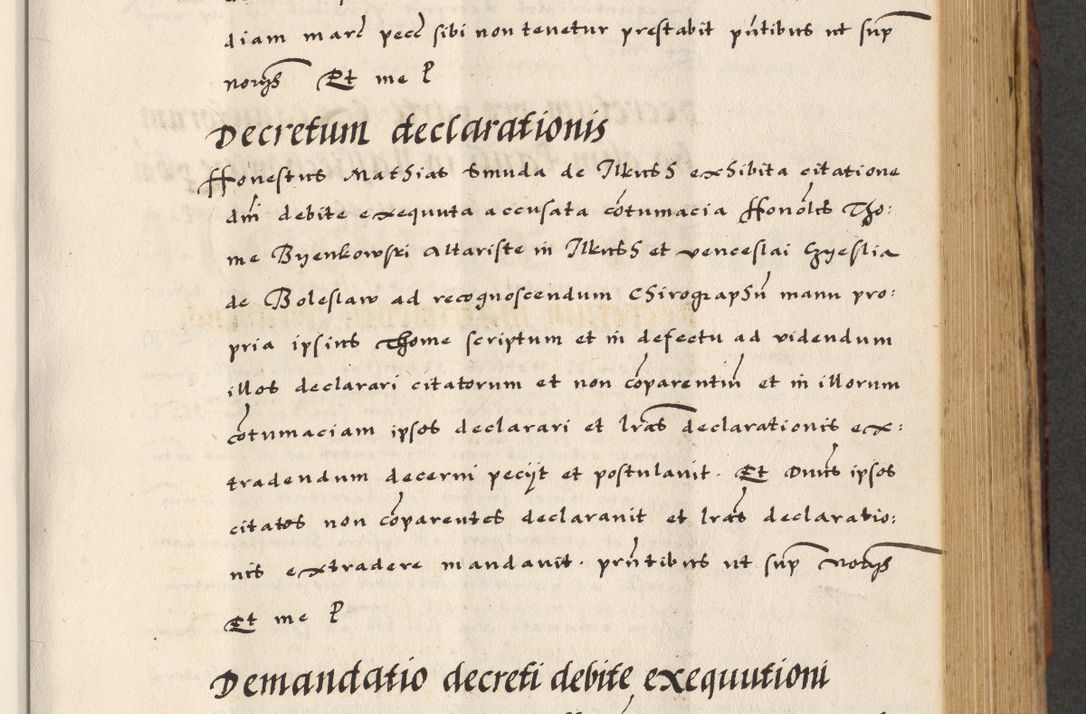 diam marc pecc sibi non tenetur prestabit pñtibus ut sup
noĩs Et me P
Decretum declarationis
Honestus Mathias Smuda de Ilkush exhibita citatione
dni debite exequuta accusata cõtumacia Honõles Tho:
me Byenkowski Altariste in Ilkush et venceslai
de Boleslaw ad recognoscendum Chirographũ manu pro:
pria ipsius Thome scriptum et in defectu ad videndum
illos declarari citatorum et non cõparentiũ et in illorum
cõtumaciam ipsos declarari et lras declarationis ex:
tradendum decerni peciit et postulavit. Et Dnus ipsos
citatos non cõparentes declaravit et lras declaratio:
nis extradere mandavit. prñtibus ut sup
Et me P
Demandatio decreti debite exequutioni